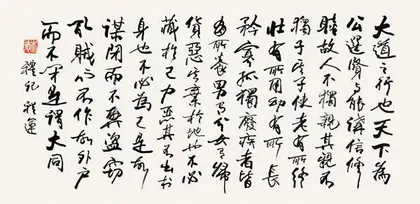 大道之行也天下為
公選賢與能講信修
睦故人不獨親其親不
獨子其子使老有所終
壯有所用幼有所長
矜寡孤獨廢疾者皆
有所養男有分女有歸
貨惡其棄於地也不必
藏於己力惡其不出於
身也不必為己是故
謀閉而不興盜竊
亂賊而不作故外戶
而不閉是謂大同
禮記 禮運